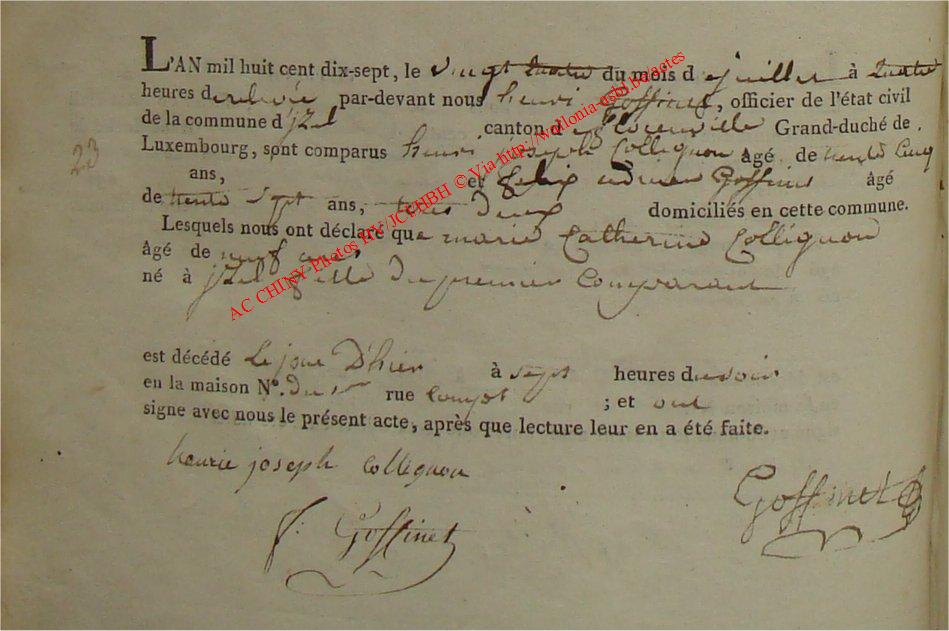 23
L'AN mil huit cent dix-sept, le vingt quatre du mois de juillet à quatre
heures de relevée par-devant nous henri Goffinet, officier de l'état civil
de la commune d'jzel canton de florenville Grand-duché de
Luxembourg, sont comparus henri joseph Collignon âgé de trente cinq
ans, et felix adrien Goffinet âgé
de trente sept ans, tous deux domiciliés en cette commune.
Lesquels nous ont déclaré que marie Catherine Collignon
âgé de neuf ans
né à jzel fille du premier Comparant
est décédé le jour D'hier à sept heures du soir
en la maison N°. du rue ; et ont
signe avec nous le présent acte, après que lecture leur en a été faite.
henrie joseph collignon
Goffinet
f: Goffinet
AC CHINY Photos RV/JCLHBH © Via http://wallonia-asbl.be/actes